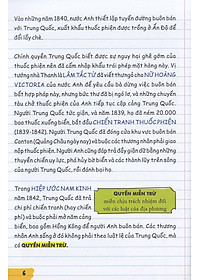 Vào những năm 1840, nước Anh thiết lập tuyến đường buôn bán
với Trung Quốc, xuất khẩu thuốc phiện được trồng ở Ấn Độ để
đổi lấy chè.
Chính quyền Trung Quốc biết được sự nguy hại ghê gớm của
thuốc phiện đã cấm nhập khẩu trái phép mặt hàng này. Vị
tướng nhà Thanh là LÂM TẮC TỪ đã viết thư gửi cho NỮ HOÀNG
VICTORIA của nước Anh để yêu cầu bà dừng việc buôn bán
bất hợp pháp này, nhưng bức thư đã bị ngó lơ, và những chuyến
tàu chở thuốc phiện của Anh tiếp tục cập cảng Trung Quốc.
Người Trung Quốc tức giận, và năm 1839, họ đã ném 20.000
bao thuốc xuống biển, bắt đầu CHIẾN TRANH THUỐC PHIỆN
(1839-1842). Người Trung Quốc đã đóng cửa khu vực buôn bán
Canton (Quảng Châu ngày nay) và buộc các thương nhân phải giao
nộp thuốc phiện. Người Anh cũng đáp trả đầy đủ bằng những
thuyền pháo cỡ lớn, phá hủy bờ biển và các thành lũy trên sông
của người dân trong vòng hai năm.
Trong HIỆP ƯỚC NAM KINH
năm 1842, Trung Quốc đã trả
chi phí chiến tranh (hay chiến
phí) và buộc phải mở năm cảng
biển, bao gồm Hồng Kông để người Anh buôn bán. Các thương
nhân Anh sống ở đó không phải theo luật lệ của Trung Quốc, mà
có QUYỀN MIỄN TRỪ.
QUYỀN MIỄN TRỪ
miễn chịu trách nhiệm đối
với các luật của địa phương
6